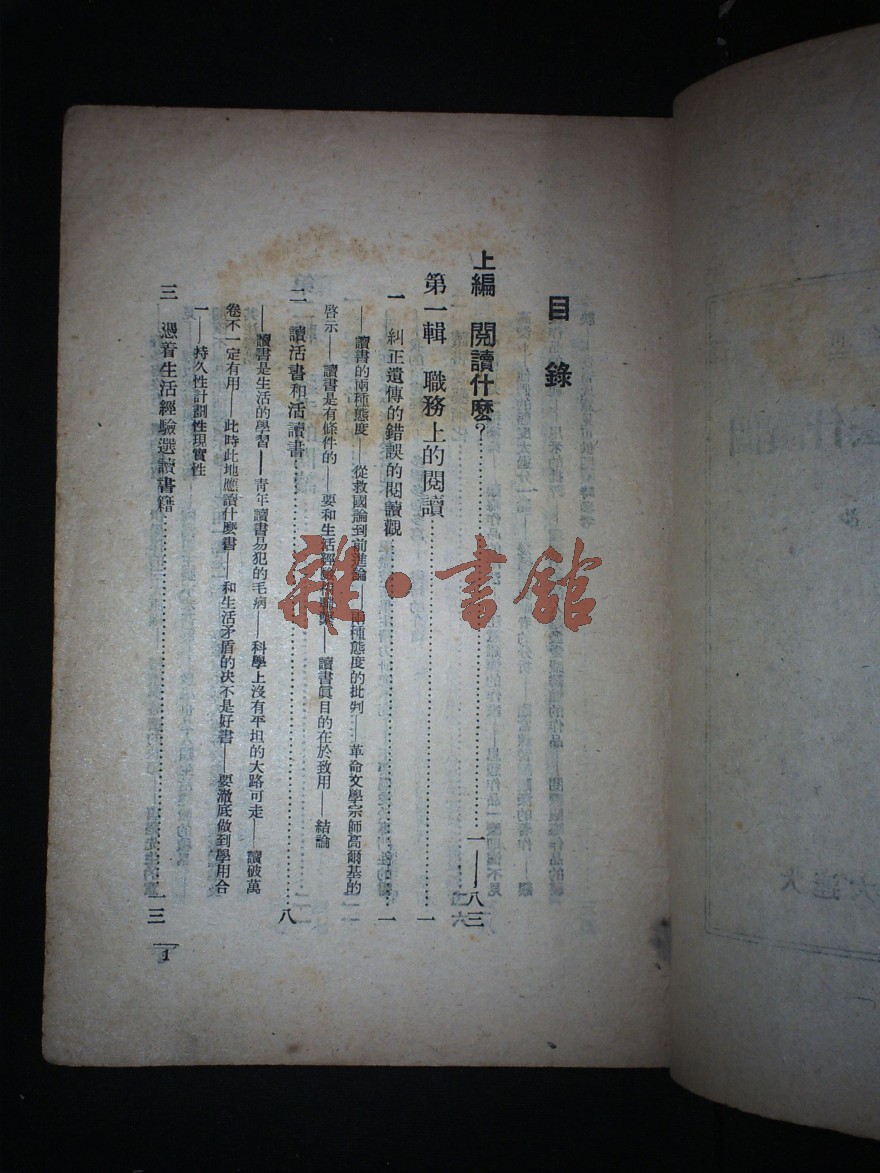 目錄
上編 閱讀什麼?……一——八三
第一輯 職務上的閱讀……一
一 糾正遺傳的錯誤的閱讀觀……一
——讀書的兩種態度——從救國論到前進論——兩種態度的批判——革命文學宗師高爾基的
啓示——讀書是有條件的——要和生活經——讀書眞目的在於致用——結論
二 讀活書和活讀書……八
——讀書是生活的學習——青年讀書易犯的毛病——科學上沒有平坦的大路可走——讀破萬
卷不一定有用——此時此地應讀什麼書——和生活矛盾的决不是好書——要澈底做到學用合
一——持久性計劃性現實性
三 憑着生活經驗選讀書籍……一三
1
雜·書舘